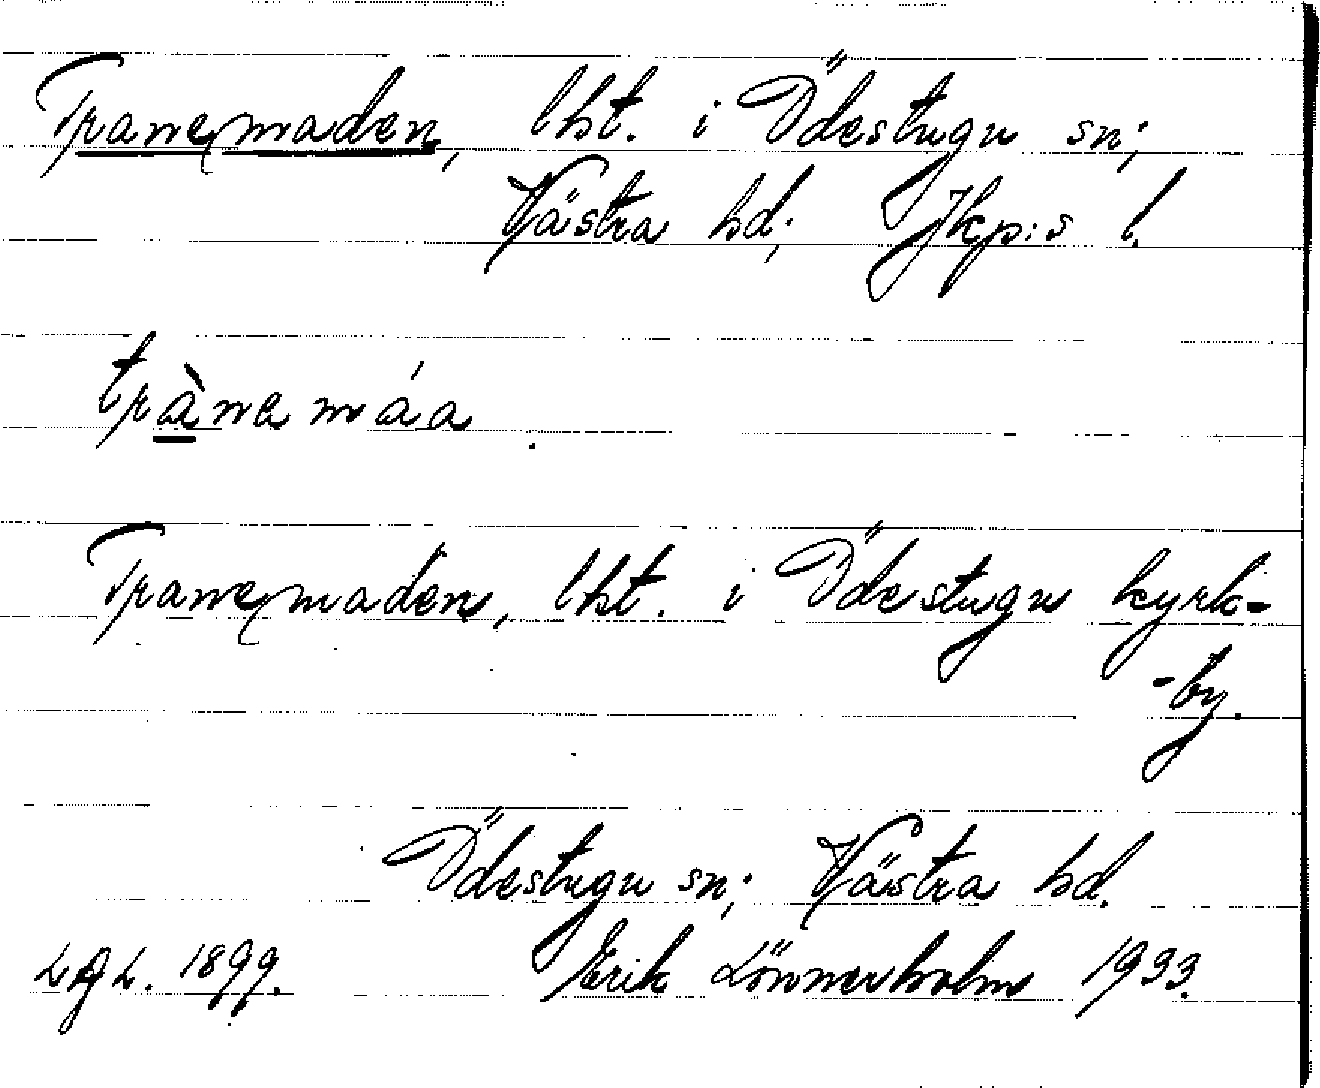 Tranemaden, lht. i Ödestugu sn;
Västra hd; Jkp:s l.
trànamáa
Tranemaden, lht. i Ödestugu kyrk-
-by.
Ödestugu sn; Västra hd.
1899. Erik Lönnerholm 1933.